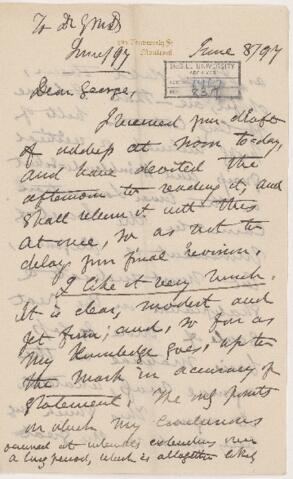 To Dr GMD
June/97
University St
Montreal
June 8/97
McGILL UNIVERSITY
ARCHIVES
Dear George,
I received your draft
of address at noon today,
and have devoted the
afternoon to reading it, and
shall return it with this
at once, so as not to
delay your final revision.
I like it very much.
It is clear, modest and
yet firm; and, so far as
my knowledge goes, up to
the mark in accuracy of
statement. The only points
in which my conclusions
occurred at intervals extending over
a long period, which is altogether likely